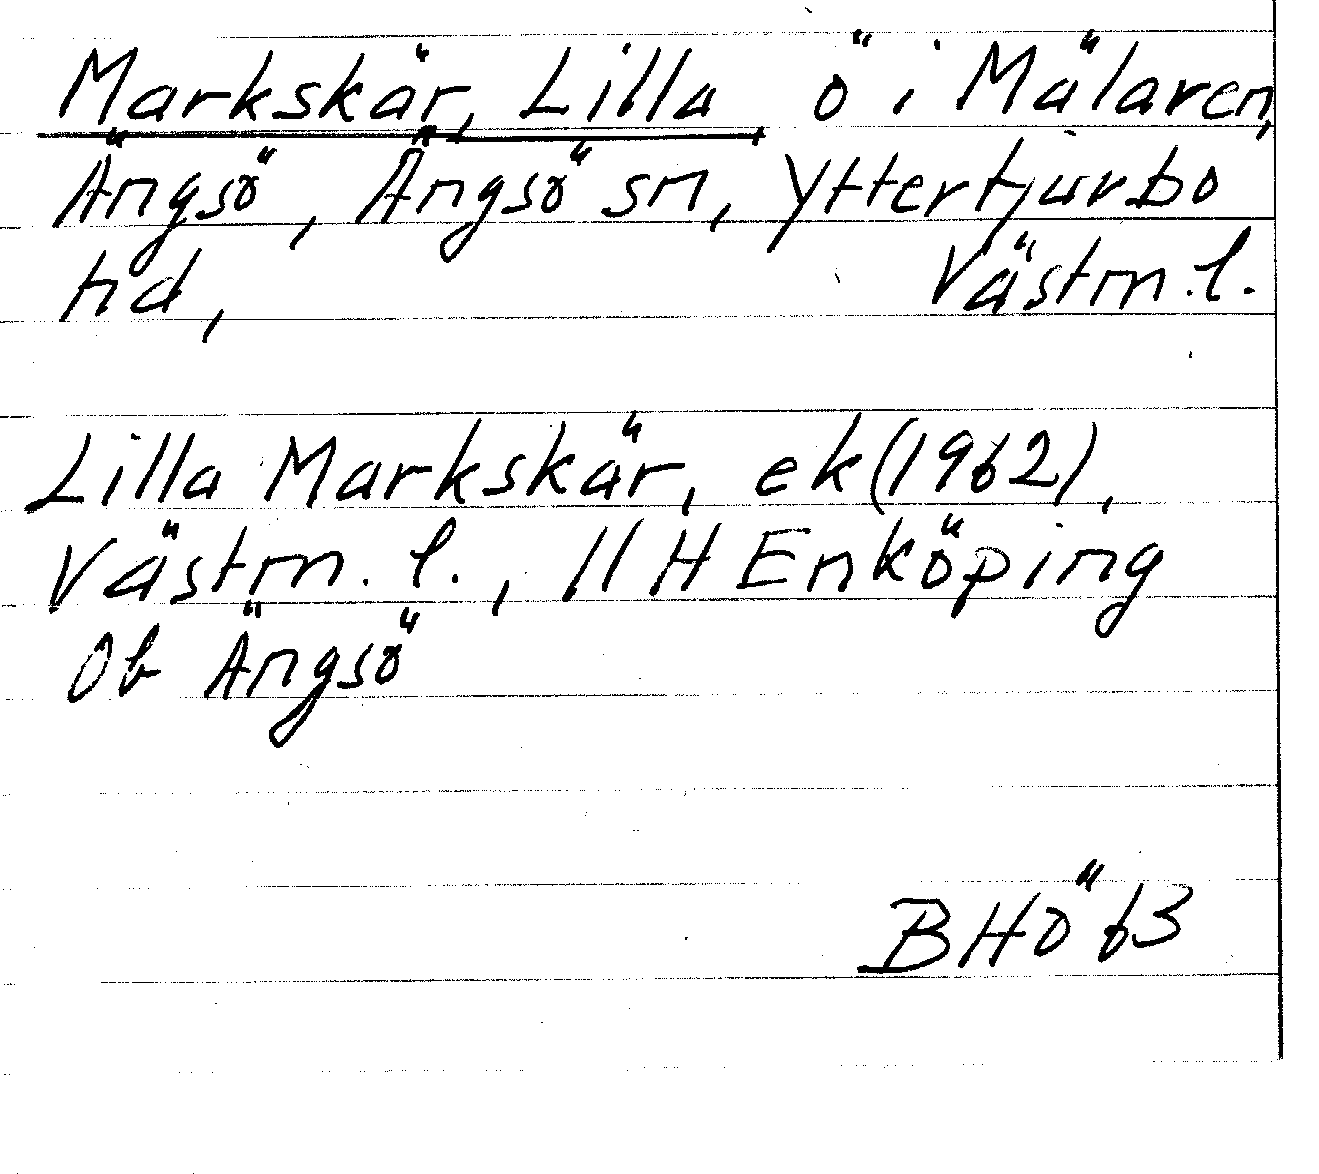 Markskär, Lilla ö i Mälaren,
Ängsö, Ängsö sn, Yttertjurbo
hd, Västm. l.
Lilla Markskär, ek (1962),
Västm. l., 11 H Enköping
0b Ängsö
BHÖ 63